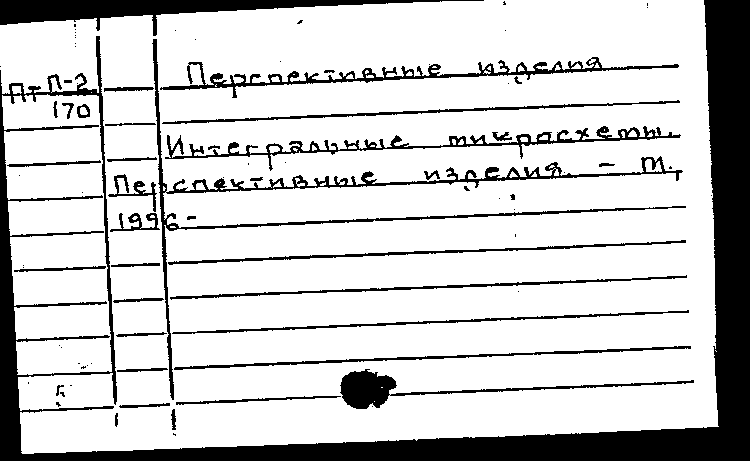 Перспективные изделия
Пт П-2
170
Интегральные микросхемы.
Перспективные изделия. - М.,
1996-
Б